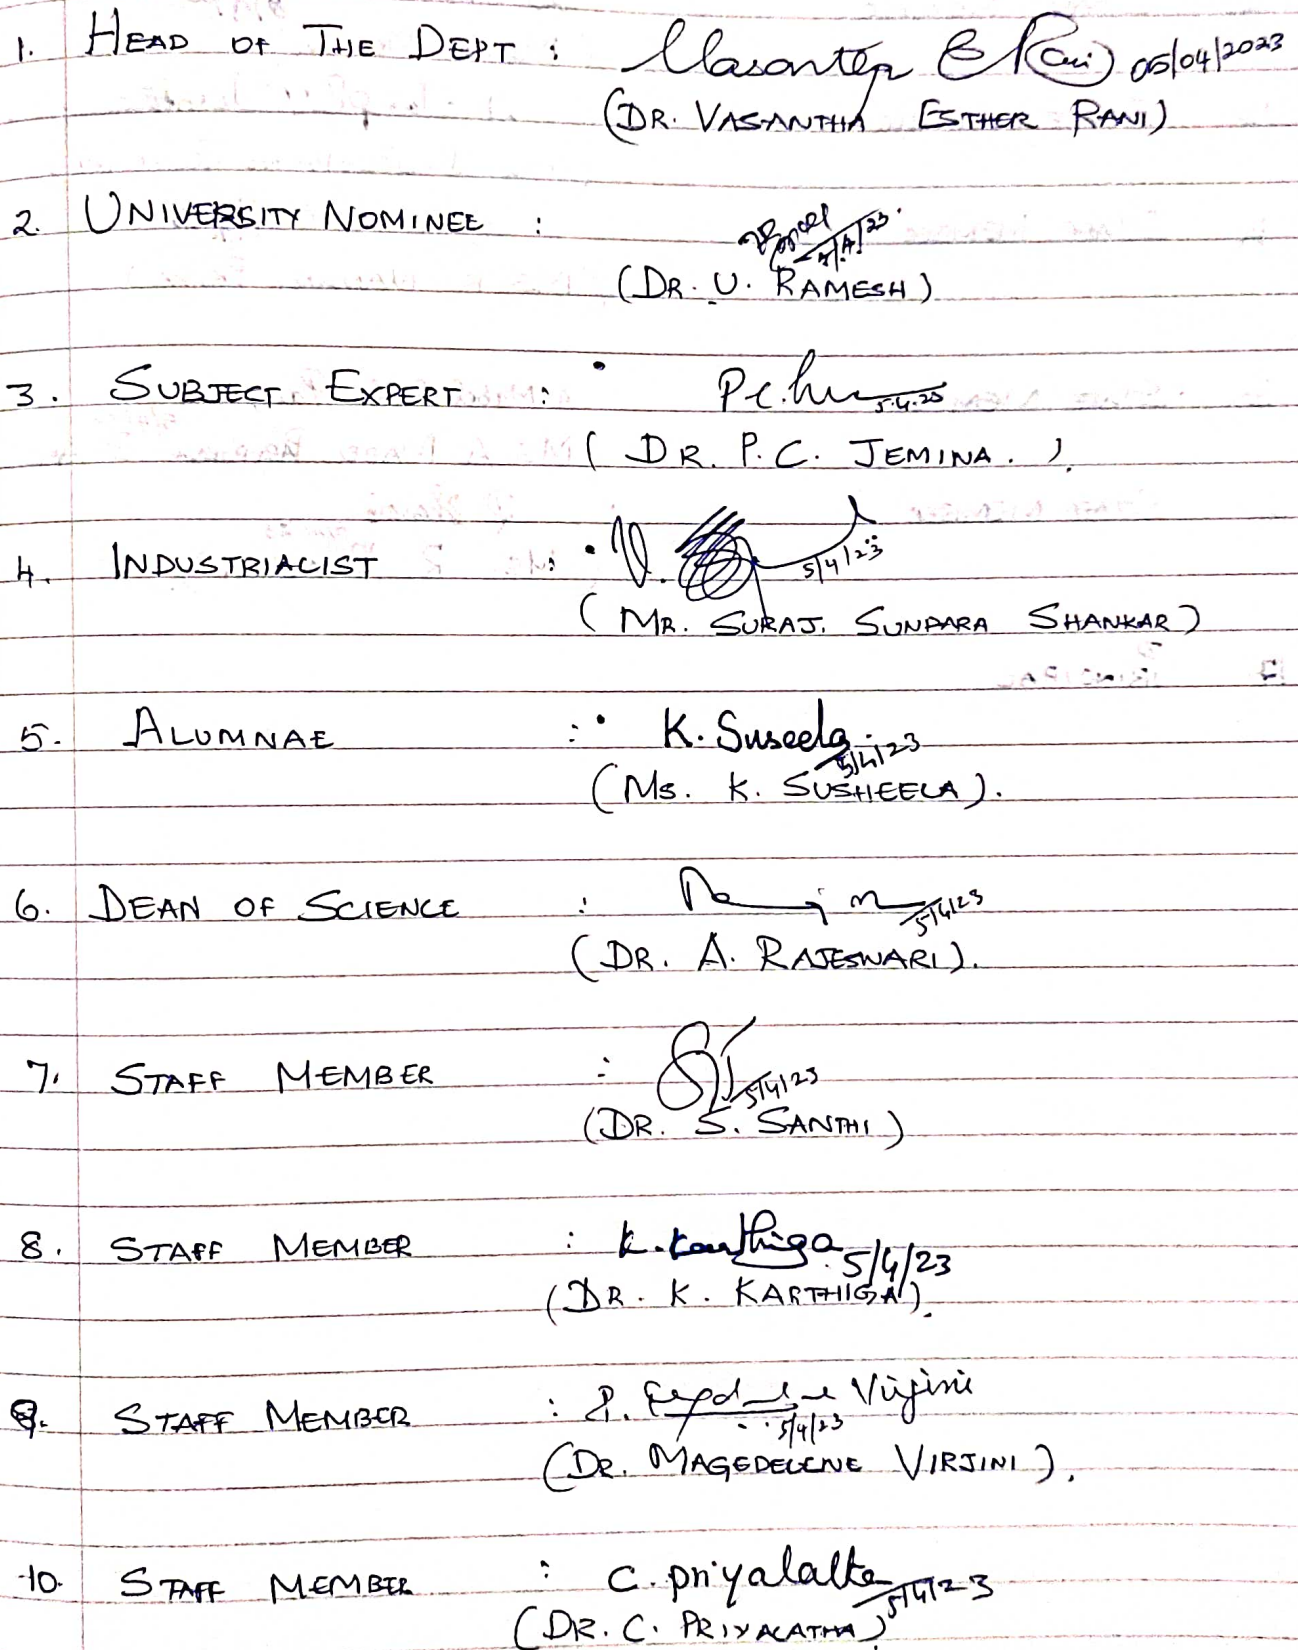 1. HEAD OF THE DEPT : Vasantha E Rani 05/04/2023
(DR. VASANTHA ESTHER RANI)
2. UNIVERSITY NOMINEE :
5/4/23.
(DR. U. RAMESH)
3. SUBJECT EXPERT :
5.4.23
( DR. P.C. JEMINA. ).
4. INDUSTRIALIST :
5/4/23
( MR. SURAJ. SUNDARA SHANKAR)
5. ALUMNAE : K. Suseela
5/4/23
(MS. K. SUSHEELA).
6. DEAN OF SCIENCE :
5/4/23
(DR. A. RAJESWARI).
7. STAFF MEMBER :
5/4/23
(DR. S. SANTHI)
8. STAFF MEMBER : K. Karthiga 5/4/23
(DR. K. KARTHIGA).
9. STAFF MEMBER : Virjini
5/4/23
(DR. MAGEDELENE VIRJINI).
10. STAFF MEMBER : C. Priyalatha 5/4/23
(DR. C. PRIYALATHA)